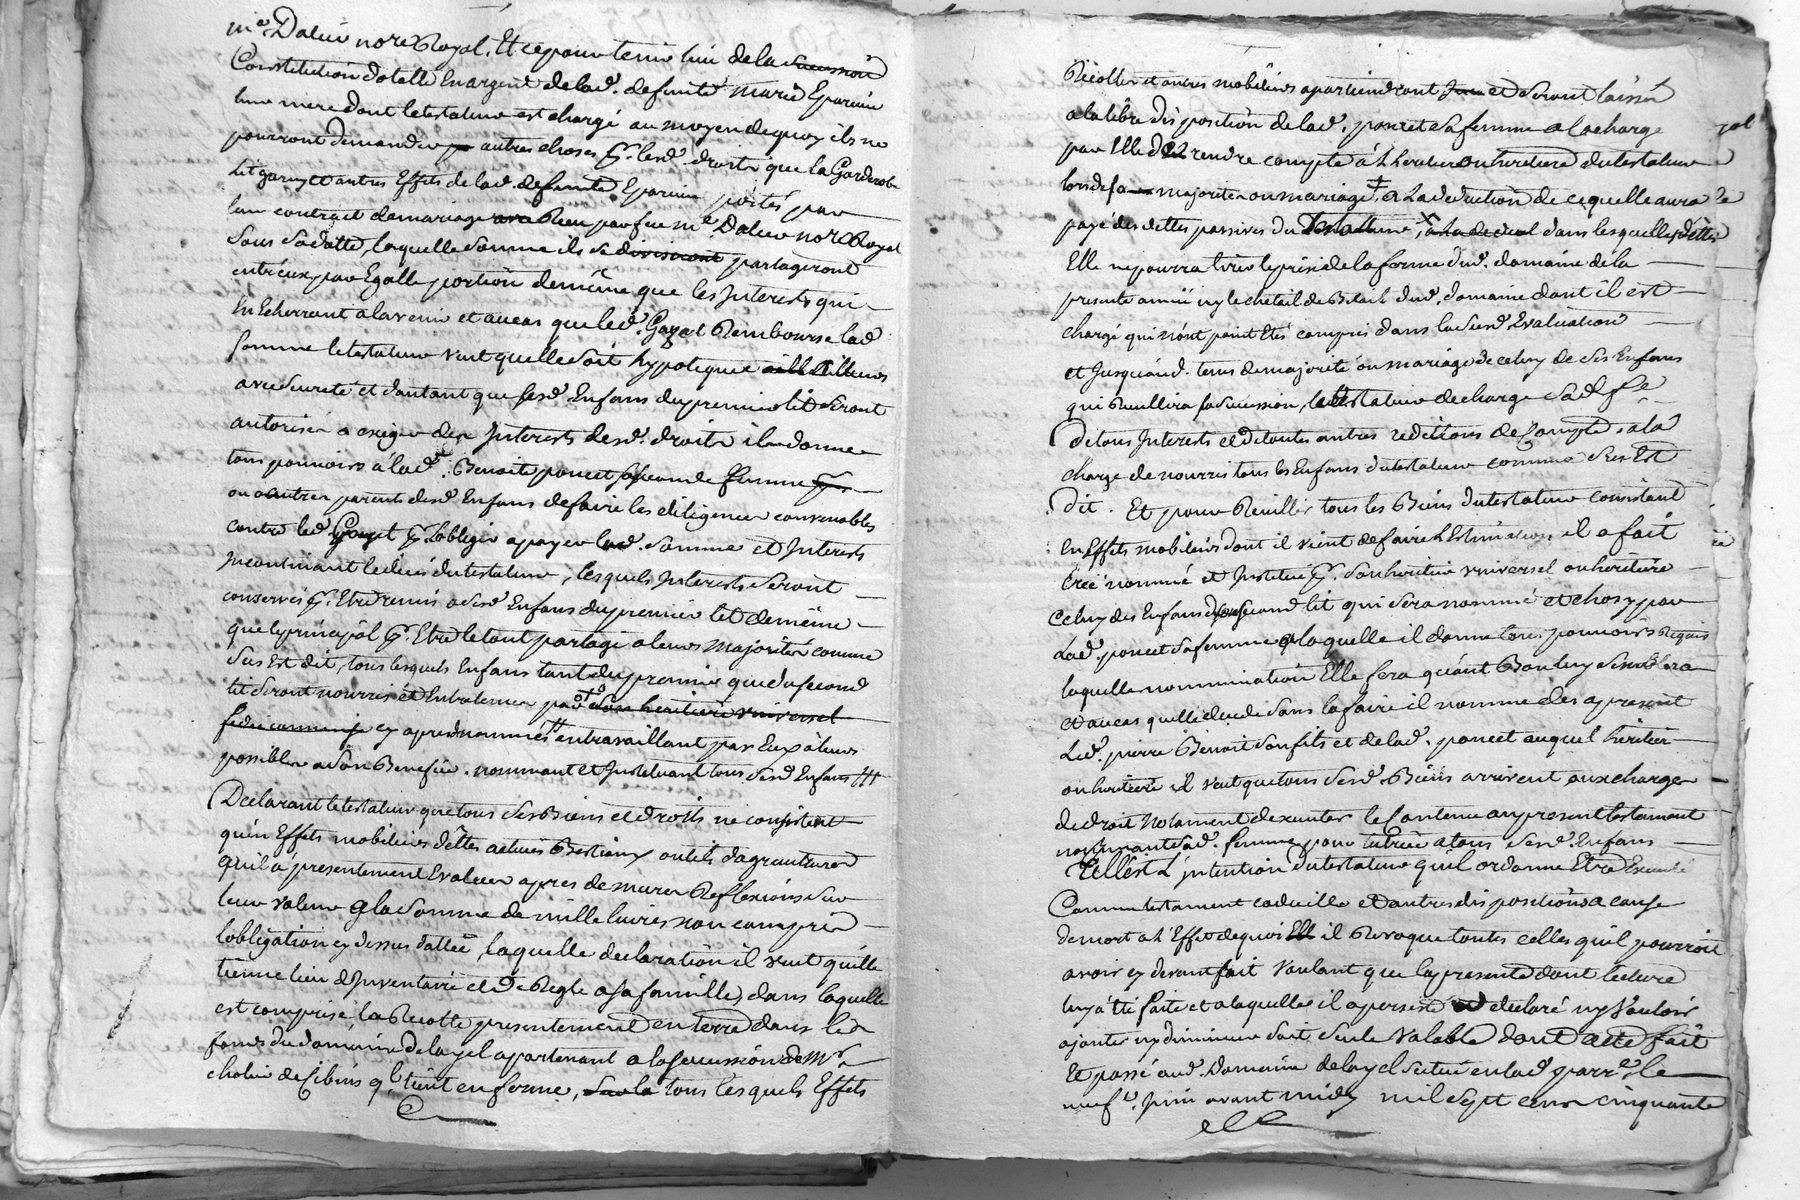 me Dalier nore Royal. Et ce pour tenir lieu de la succession
Constitution dotalle en argent de lad. defunte marie Eparvier
leur mere dont le testateur est chargé au moyen de quoy ils ne
pourront demander autres choses pr. lesd. droits que la Garderobe
Lit garny et autres Effets de lad. defunte Eparvier portés par
leur contrait de mariage Reçu par feu me Dalier nore Royal
sous sa datte, laquelle somme ils se diviseront partageront
entr'eux par Egalle portion de même que les Interests qui
En Echerront a lavenir et au cas que led. Gayet Rembourse lad
somme le testateur veut quelle soit hypotequée ailleurs
avec sureté et dautant que sesd. Enfans du premier lit seront
autorisés a exiger des Interests desd. droits il donne
tous pouvoirs a lad. Benoite poncet sa seconde femme
ou autres parents desd. Enfans de faire les diligences convenables
contre led. Gayet pr. lobliger a payer lad. somme et Interests
incontinant le deces du testateur, lesquels Interests seront
conservés pr. Etre remis a sesd. Enfans du premier lit de même
que le principal pr. Etre le tout partagé a leurs majorités comme
sus Est dit, tous lesquels Enfans tant du premier que du second
lit seront nourris et Entretenus par son heritier universel
fideicommisse cy apres nommés en travaillant par Eux à leurs
possibles a son Benefice. nommant et Instituant tous sesd. Enfans
Declarant le testateur que tous ses Biens et droits ne consistent
qu'en Effets mobiliers dettes actives Bestiaux outils dagriculture
quil a presentement Evaluer apres de mures Reflexions sur
leur valeur a la somme de mille livres non compris
lobligation cy dessus dattée, laquelle declaration il veut quelle
tienne lieu dInventaire et de Regle a sa famille, dans laquelle
est comprise la Recolte presentement en terre dans les
fonds du domaine de layel apartenant a la succession de Mr.
cholier de Cibins ql. tient en ferme, sur la tous lesquels Effets
Récoltes et autres mobiliers apartiendront et seront laissés
a la libre disposition de lad. poncet sa femme a la charge
par Elle de rendre compte à l heritier ou heritiere du testateur
lors de sa majorite ou mariage, a La deduction de ce quelle aura
payé des dettes passives du Testateur, a la deduct dans lesquelles dettes
Elle ne pourra tirer le prix de la ferme dud. domaine de la
presente année ny le cheteil de Betail dud. domaine dont il est
chargé qui n'ont point Etés compris dans la susd. Evaluation
et Jusqu'aud. tems de majorité ou mariage de celuy de ses Enfans
qui Recullira sa succession, le testateur decharge sad. fe.
de tous Interests et de toutes autres redditions de Compte, a la
charge de nourrir tous les Enfans du testateur comme sus Est
dit. Et pour Recullir tous les Biens du testateur consistant
En Effets mobiliers dont il vient de faire l Estimation, il a fait
créé nommé et Institué pr. son heritier universel ou heritiere
Celuy des Enfans du second lit qui sera nommé et choisy par
Lad. poncet sa femme a laquelle il donne tous pouvoirs Requis
laquelle nommination Elle fera quant Bon luy semblera
Et au cas quelle decede sans la faire il nomme des apresent
Led. pierre Benoit son fils et de lad. poncet auquel heritier
ou heritiere il veut que tous sesd. Biens arrivent aux charges
de droit notament dexecuter le Contenu au present testament
nommant sad. femme pour tutrice a tous sesd. Enfans
Telle est L'intention du testateur quil ordonne Etre Executé
Comme testament codicille et autres dispositions a cause
de mort a l'Effet de quoi il Revoque toutes celles quil pourroit
avoir cy devant fait voulant que la presente dont lecture
luy a été faite et a laquelle il a persisté declaré ny vouloir
ajouter ny diminuer soit seule valable dont acte fait
Et passé aud. Domaine de layel scitué en lad. parre. le
neufe. juin avant midy mil sept cens cinquante